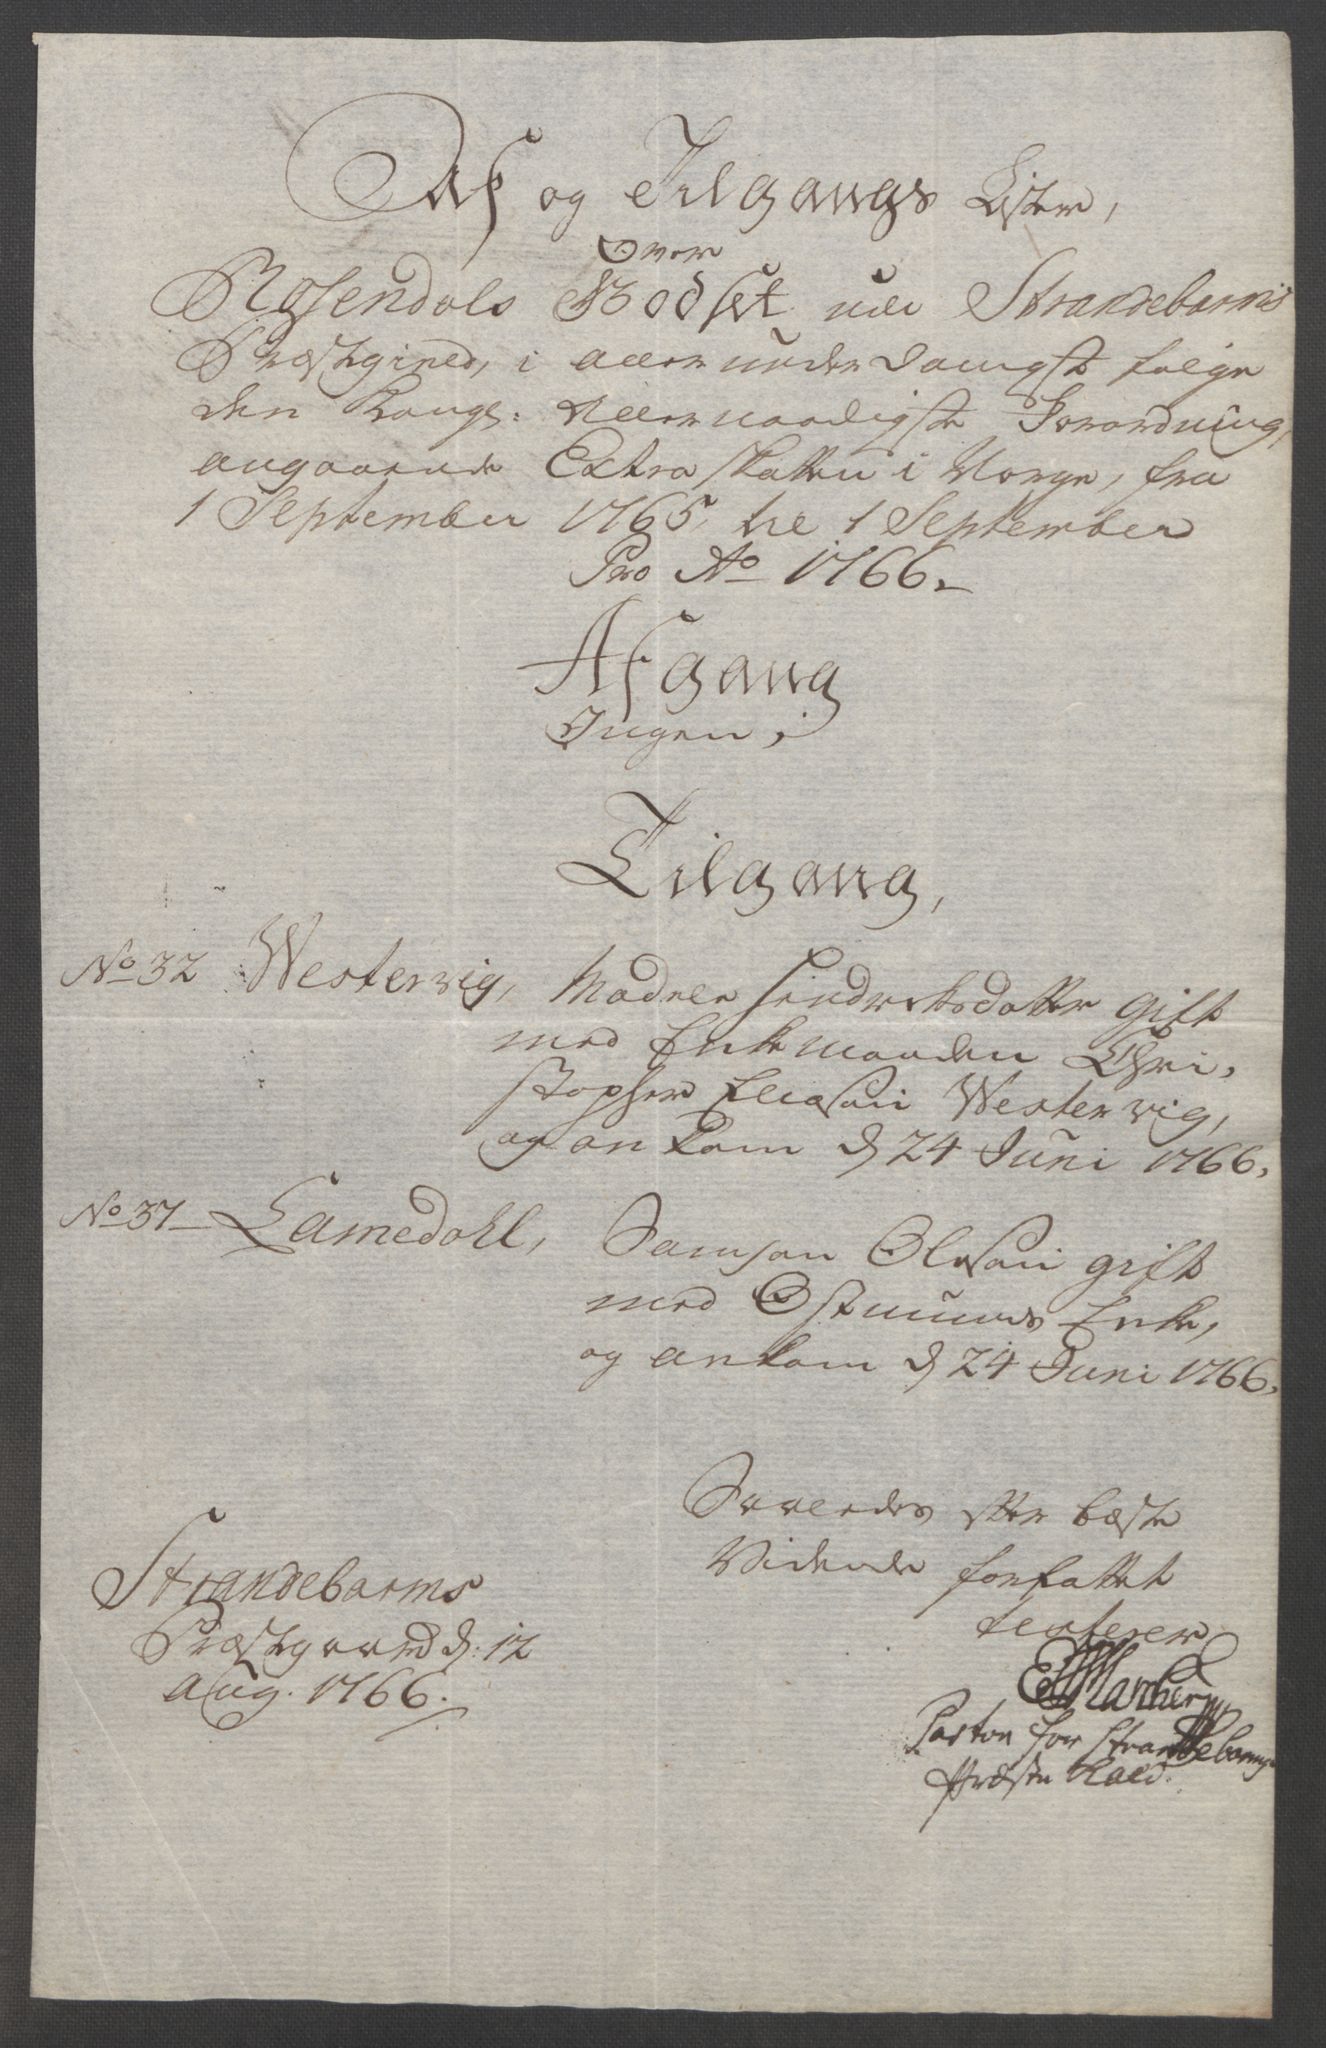 Af og Tilgangs Liste,
Over
Rosendals Godset udi Strandebarms
Præstegield, i allerunderdanigst følge
den Kongl: Allernaadigste Forordning,
angaaende Extra Skatten i Norge, fra
1 September 1765, til 1 September
Pro Ao 1766.
Afgang
Ingen,
Tilgang,
No 32 Westervig, Madele Hindrichsdatter gift
med Enkemanden Chri,
stopher Eliasøn Westervig,
og ankom d 24 Juni 1766,
No 37 Lamedahl, Samson Olsøn gift
med Ostmunds Enke,
og ankom d 24 Juni 1766,
Saaledes efter bæste
Vidende forfattet
testerer
Strandebarms
Præstegaard d: 12
Aug. 1766.
Pastor for Strandebarms
Præste Kald.